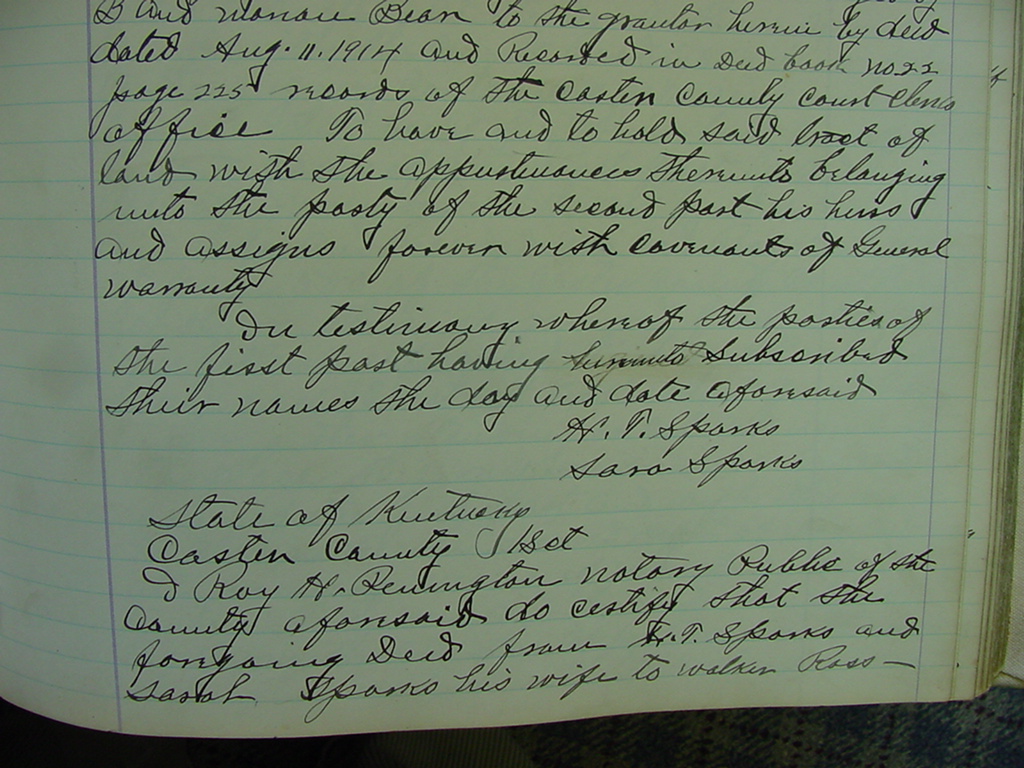 B and Bean to the grantor herein by deed
dated Aug. 11. 1914 and Recorded in Deed book no. 22
page 225 records of the Carter County court clerks
office To have and to hold said tract of
land with the appurtenances thereunto belonging
unto the party of the second part his heirs
and assigns forever with covenants of General
warranty
In testimony whereof the parties of
the first part having hereunto subscribed
their names the day and date aforesaid
H. T. Sparks
Sara Sparks
State of Kentucky
Carter County Sct
I Roy H. Penington notary Public of the
County aforesaid do certify that the
foregoing Deed from H. T. Sparks and
Sarah Sparks his wife to Walker Ross —